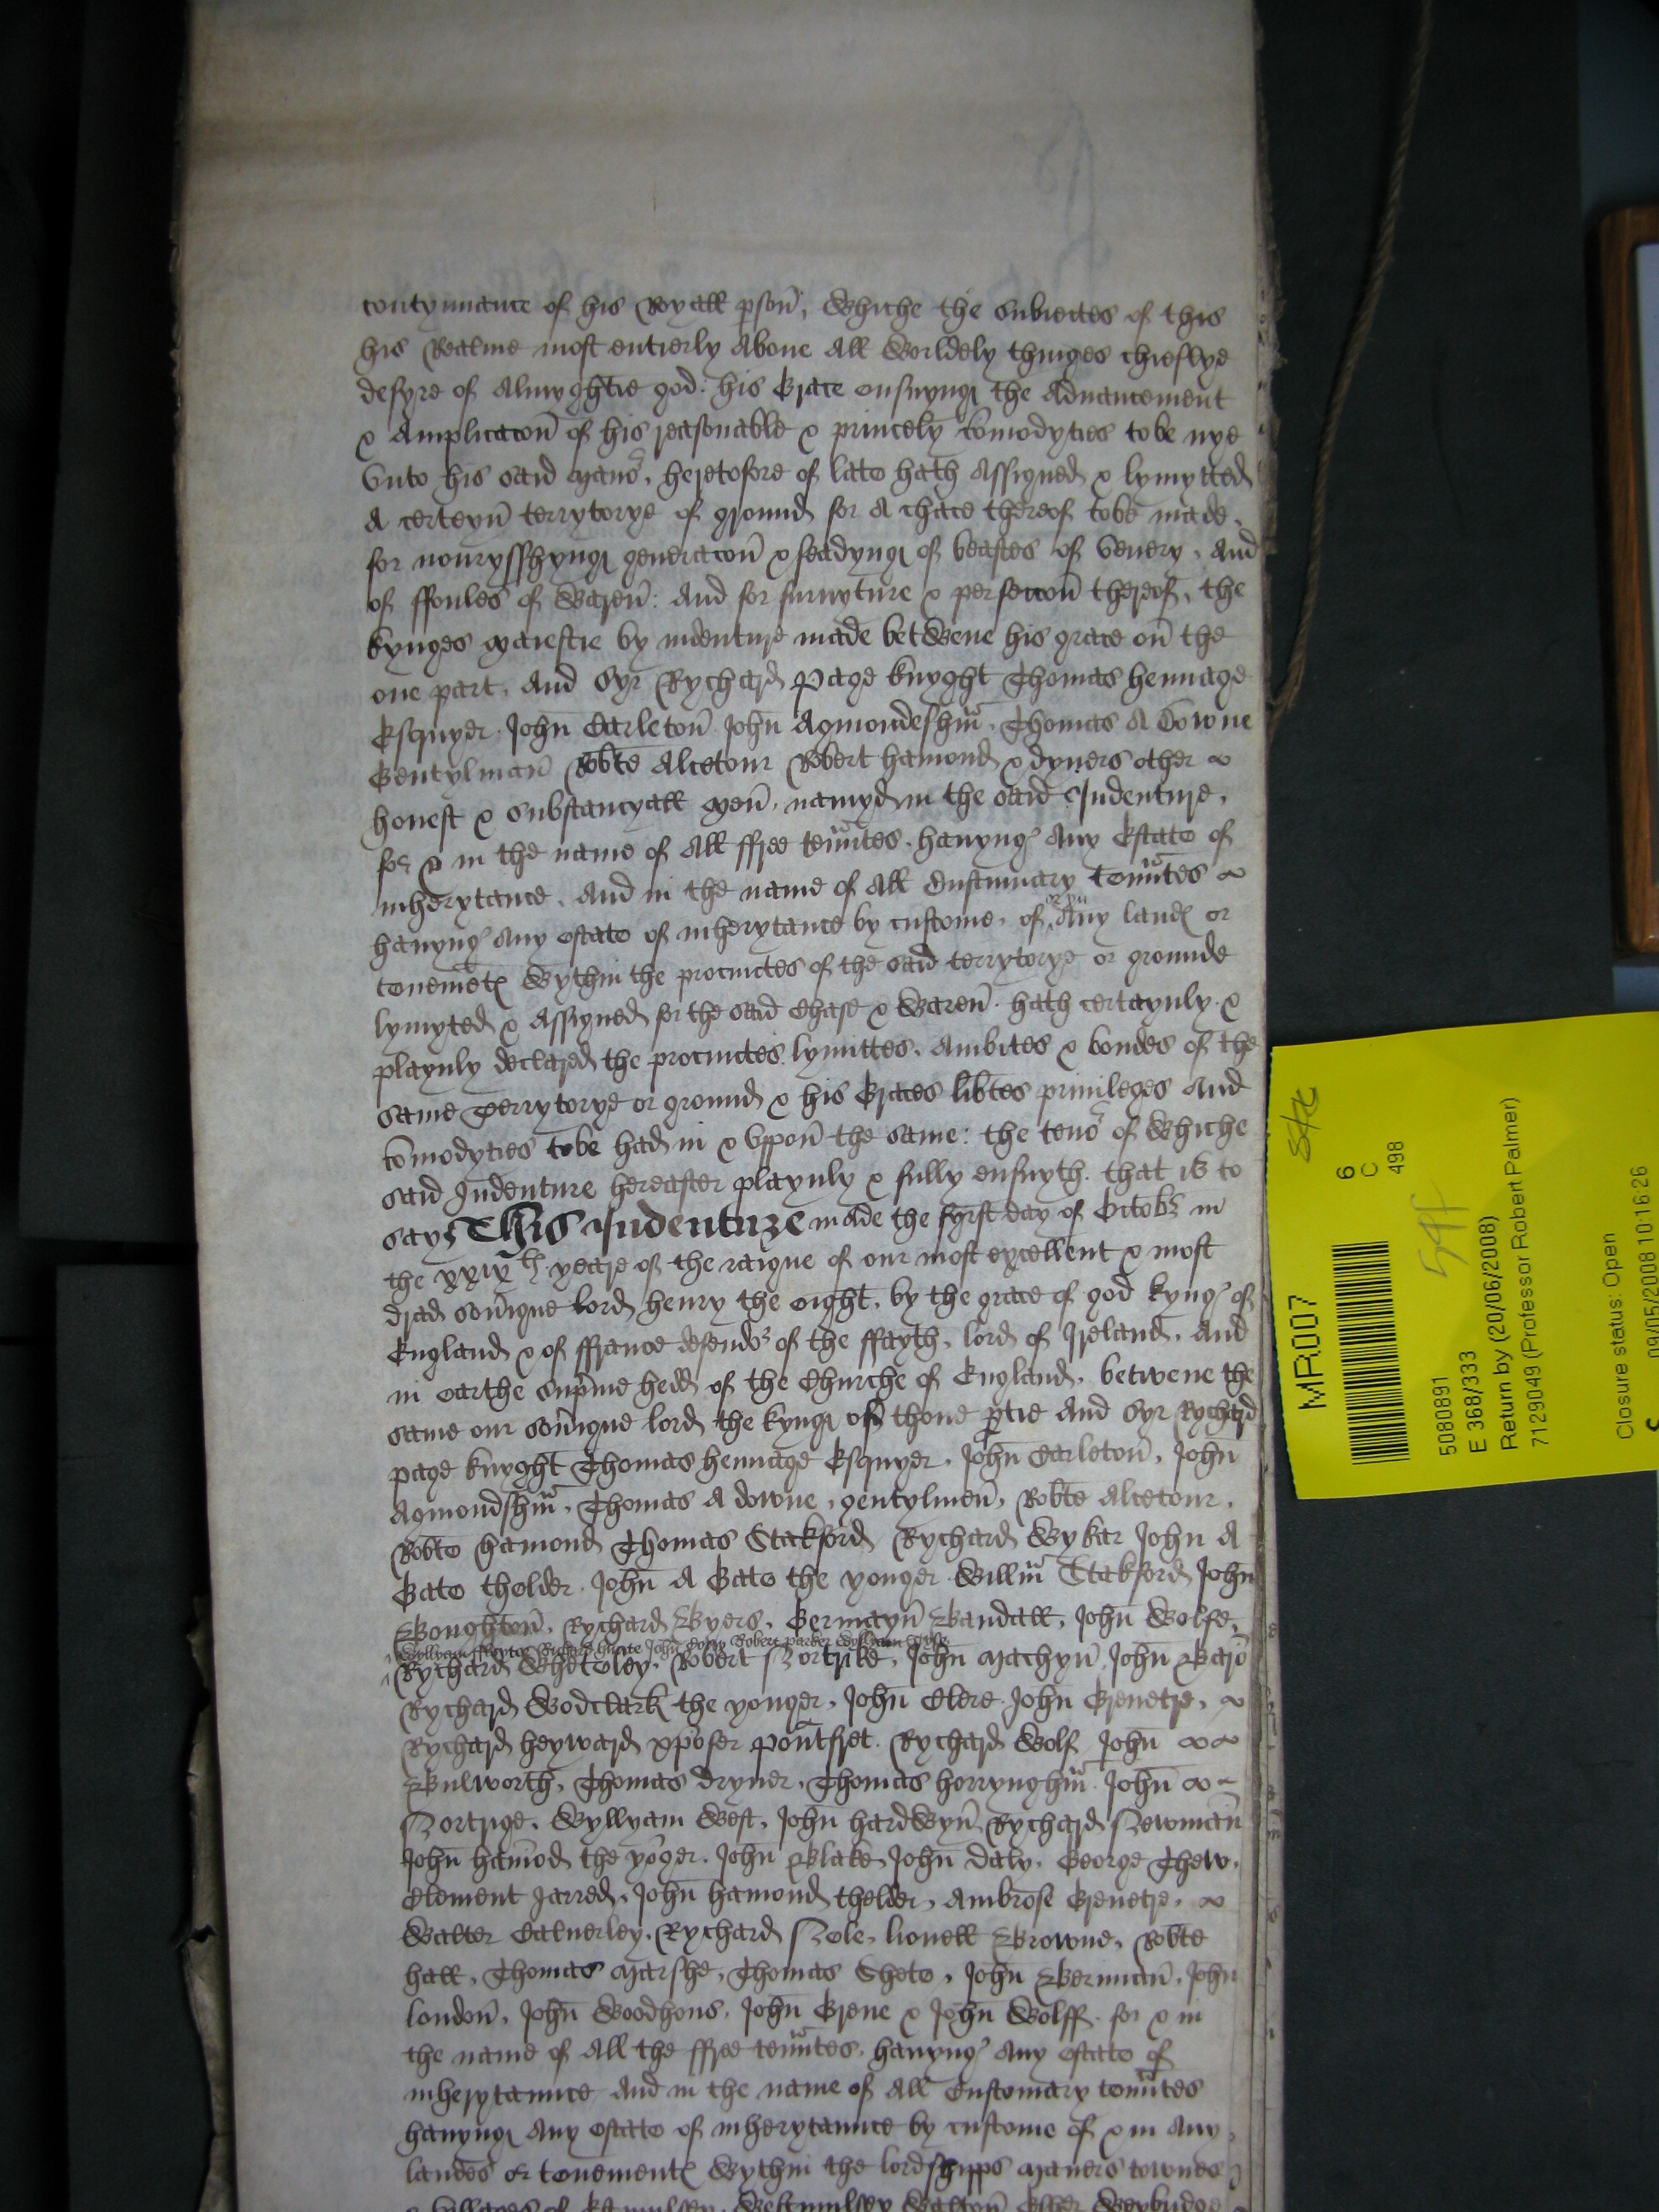 contynuance of his Royall pson, Whiche the subiectes of this
his Realme most entierly Aboue All Worldely thinges chieflye
desyre of Almyghtie god. his Grace ensuyng the Aduancement
& Amplicacon of his reasonable & princely comodyties tobe nye
Vnto his said Mano, heretofore of late hath Assigned & lymytted
A certeyn terrytorye of ground for A chace thereof tobe made,
for nourysshyng generacon & feadyng of beastes of Venery, And
of ffoules of Waren: And for furnyture & perfeccon thereof, the
kynges Maiestie by indenture made betWene his grace on the
one part, And Syr Rychard Page knyght Thomas hennage
Esquyer John Carleton John Agmondeshm, Thomas A Downe
Gentylman Robte Alcetour Robert hamond & dyuers other
honest & substancyall Men, namyd in the said Indenture,
for & in the name of All ffree tenntes, hauyng Any Estate of
inherytance, And in the name of All Custumary tenntes
hauyng Any estate of inherytance by custome, of or yn Any land or
tenemet Wythin the procinctes of the said terrytorye or grounde
lymyted & Assigned for the said Chase & Waren. hath certaynly &
playnly declared the procinctes lymittes, Ambites & bondes of the
same Terrytorye or ground & his Graces libtes priuileges And
comodyties tobe had in & Vppon the same: the teno of Whiche
said Indenture hereafter playnly & fully ensuyth. that is to
say, This Indenture made the fyrst day of Octob in
the xxix th yeare of the raigne of our most excellent & most
drad souigne lord henry the eight, by the grace of god kyng of
England & of ffrance defendo of the ffayth, lord of Ireland, And
in earthe supme hedd of the Churche of England, betwene the
same our souigne lord the kyng of thone ptie And Syr Rychard
page knyght Thomas hennage Esquyer, John Carleton, John
Agmondshm, Thomas A downe, gentylmen, Robte Alcetour,
Robte hamond Thomas Stakford Rychard Wykar John A
Gate thelder John A Gate the yonger Willm Stakford John
Boughton, Rychard Byers, Germayn Bandall, John Wolfe,
Wyllyam Robert parker Wyllyam
Rychard Wheteley, Robert Nortrike, John Machyn, John
Rychard Wodclark the yonger, John Clere John Grenetre,
Rychard heyward xpofer pontfret. Rychard Wolf John
Bulworth, Thomas Dryuer, Thomas herrynghm John
Nortrige, Wyllyam West, John hardWyn Rychard Newman
John hamod the yoger. John Blake John Daly. George Thew,
Clement Jarred, John hamond thelder, Ambrose Grenetre,
Walter Caluerley, Rychard Nele, lionell Browne, Robte
hall, Thomas Marshe, Thomas Shete, John Berman, John
london, John Woodhous, John Grene & John Wolff. for & in
the name of All the ffree tenntes, hauyng Any estate of
inherytaunce And in the name of All Customary tenntes
hauyng Any estate of inherytaunce by custome of & in Any
landes or tenement Wythin the lordshipps Maners townes
MR007
6
C
498
5080891
E 368/333
Return by (20/06/2008)
7129049 (Professor Robert Palmer)
Closure status: Open
09/05/2008 10:16:26